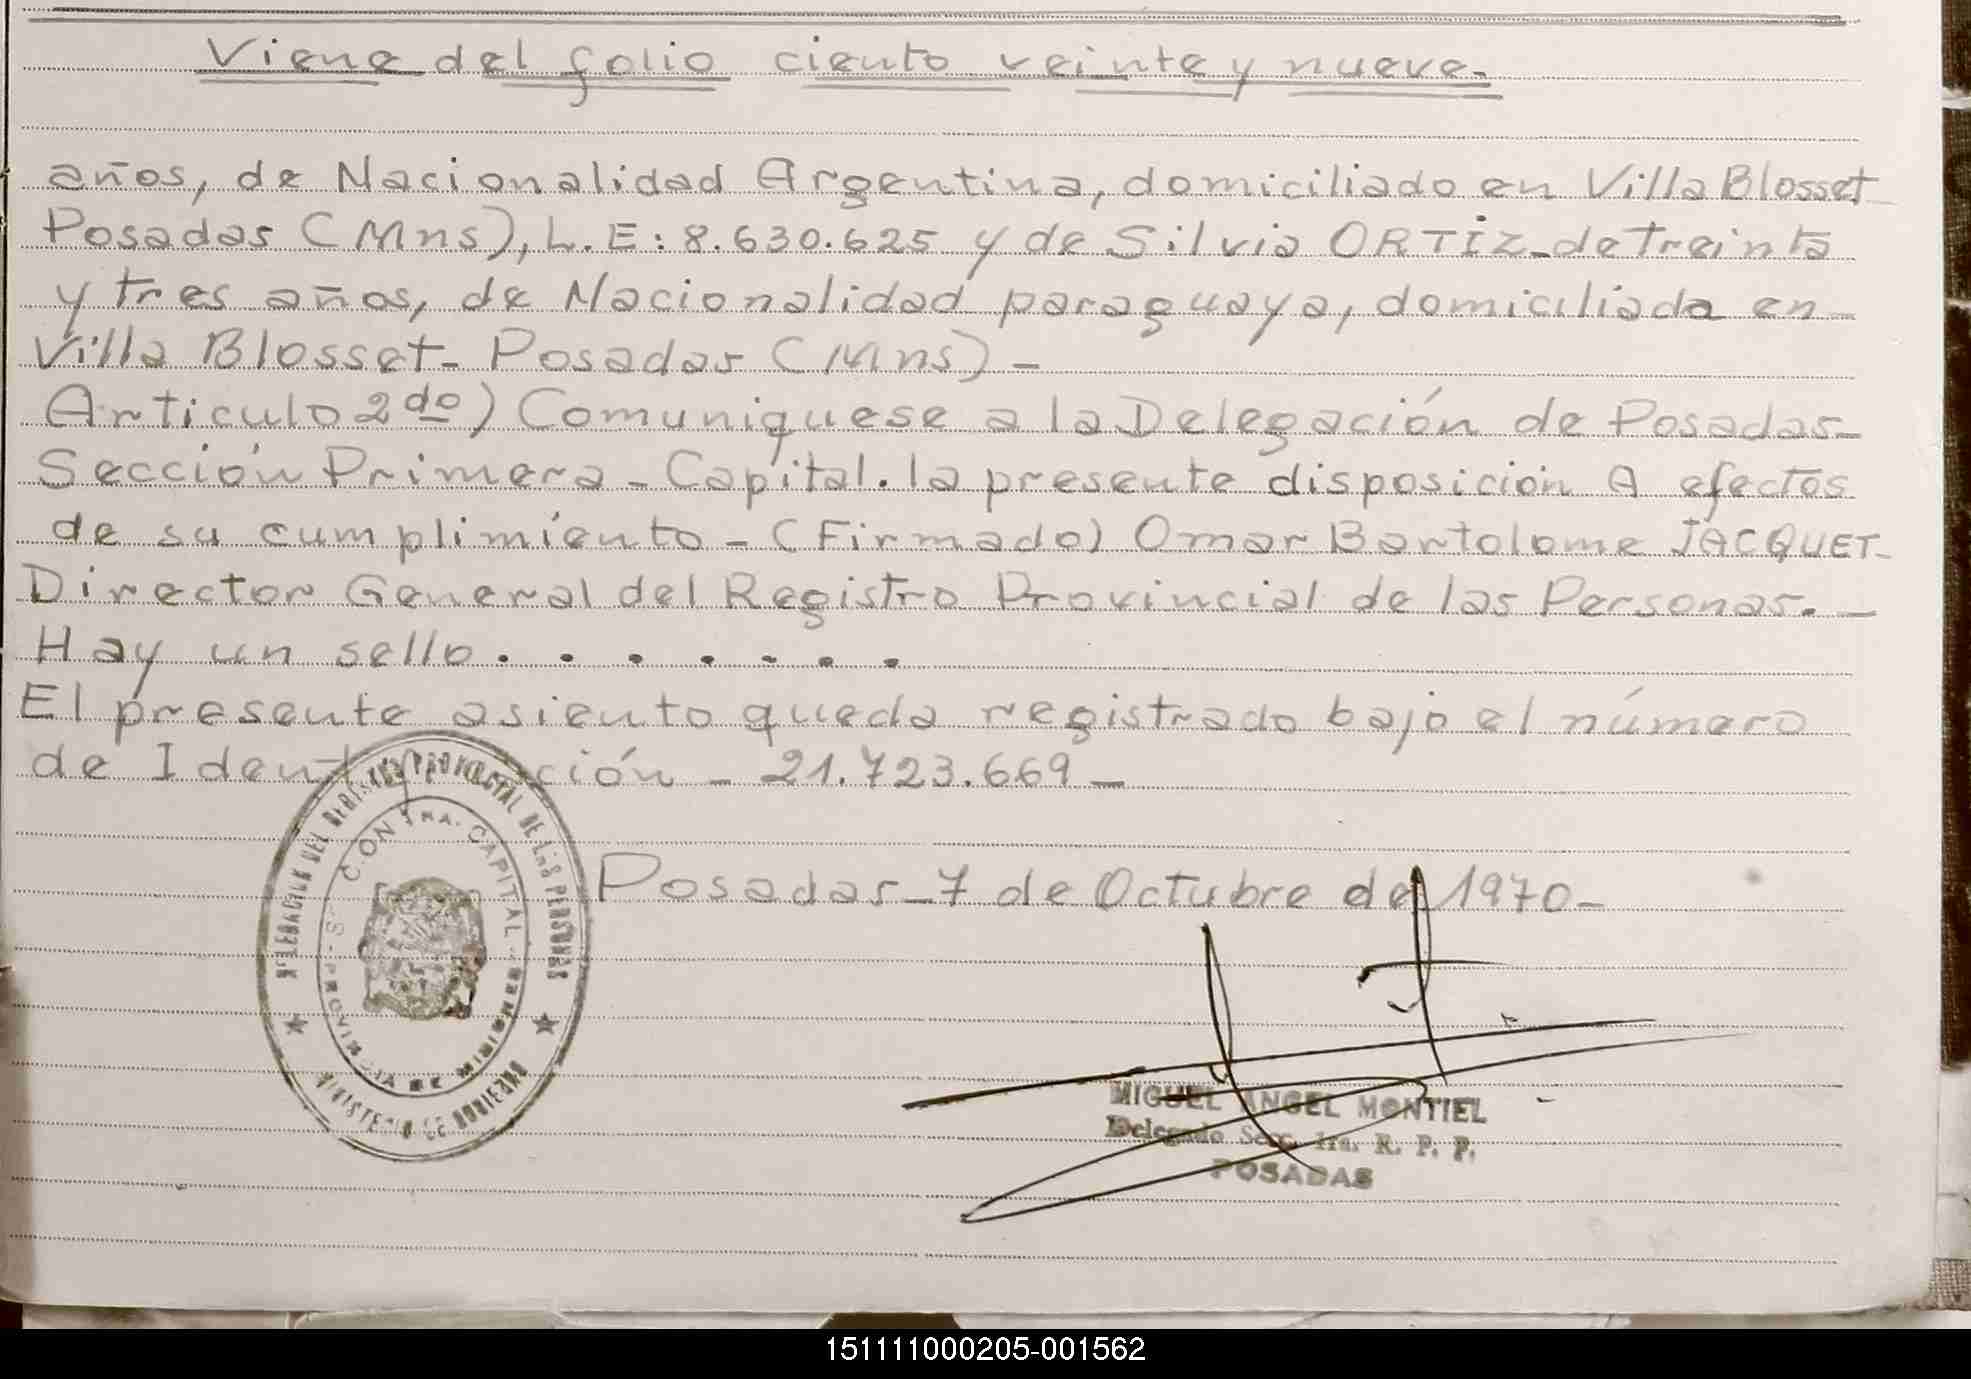 Viene del folio ciento veinte y nueve-
años, de Nacionalidad Argentina, domiciliado en Villa Blosset
Posadas (Mns), L.E: 8.630.625 y de Silvia ORTIZ- de treinta
y tres años, de Nacionalidad paraguaya, domiciliada en-
Villa Blosset- Posadas (Mns)-
Articulo 2do) Comuniquese a la Delegación de Posadas-
Sección Primera- Capital. la presente disposición A efectos
de su cumplimiento- (Firmado) Omar Bartolome JACQUET-
Director General del Registro Provincial de las Personas.-
Hay un sello. . . . . . .
El presente asiento queda registrado bajo el número
de Identificación- 21.723.669-
DELEGACION DEL REGISTRO PROVINCIAL DE LAS PERSONAS
CAPITAL
PROVINCIA DE MISIONES
MINISTERIO DE GOBIERNO
Posadas-7 de Octubre de 1970-
MIGUEL ANGEL MONTIEL
Delegado Secc. 1ra. R. P. P.
POSADAS
151111000205-001562